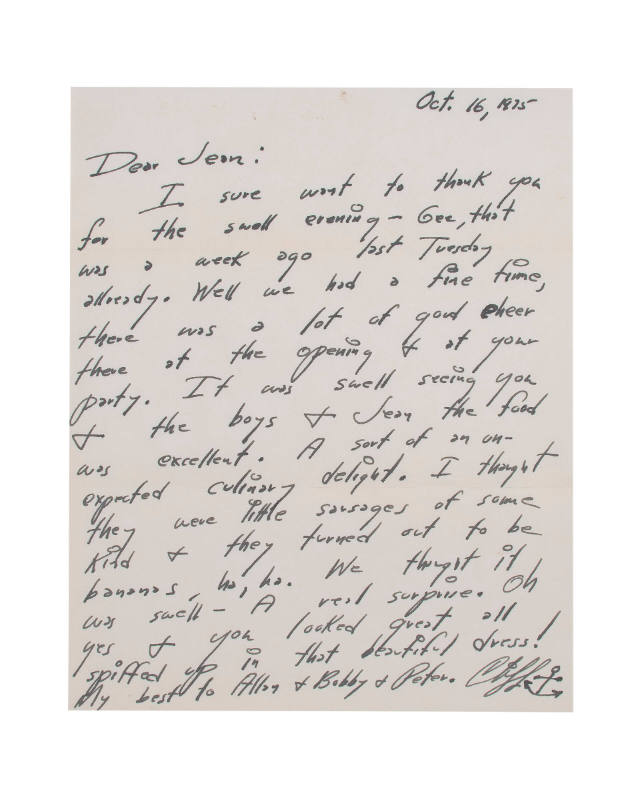 Oct. 16, 1975
Dear Jean:
I sure want to thank you
for the swell evening - Gee, that
was a week ago last Tuesday
allready. Well we had a fine time,
there was a lot of good cheer
there at the opening & at your
party. It was swell seeing you
& the boys & Jean the food
was excellent. A sort of an un-
expected culinary delight. I thought
they were little sausages of some
kind & they turned out to be
bananas, ha, ha. We thought it
was swell - A real surprise. Oh
yes & you looked great all
spiffed up in that beautiful dress!
My best to Allan & Bobby & Peter. Cliff